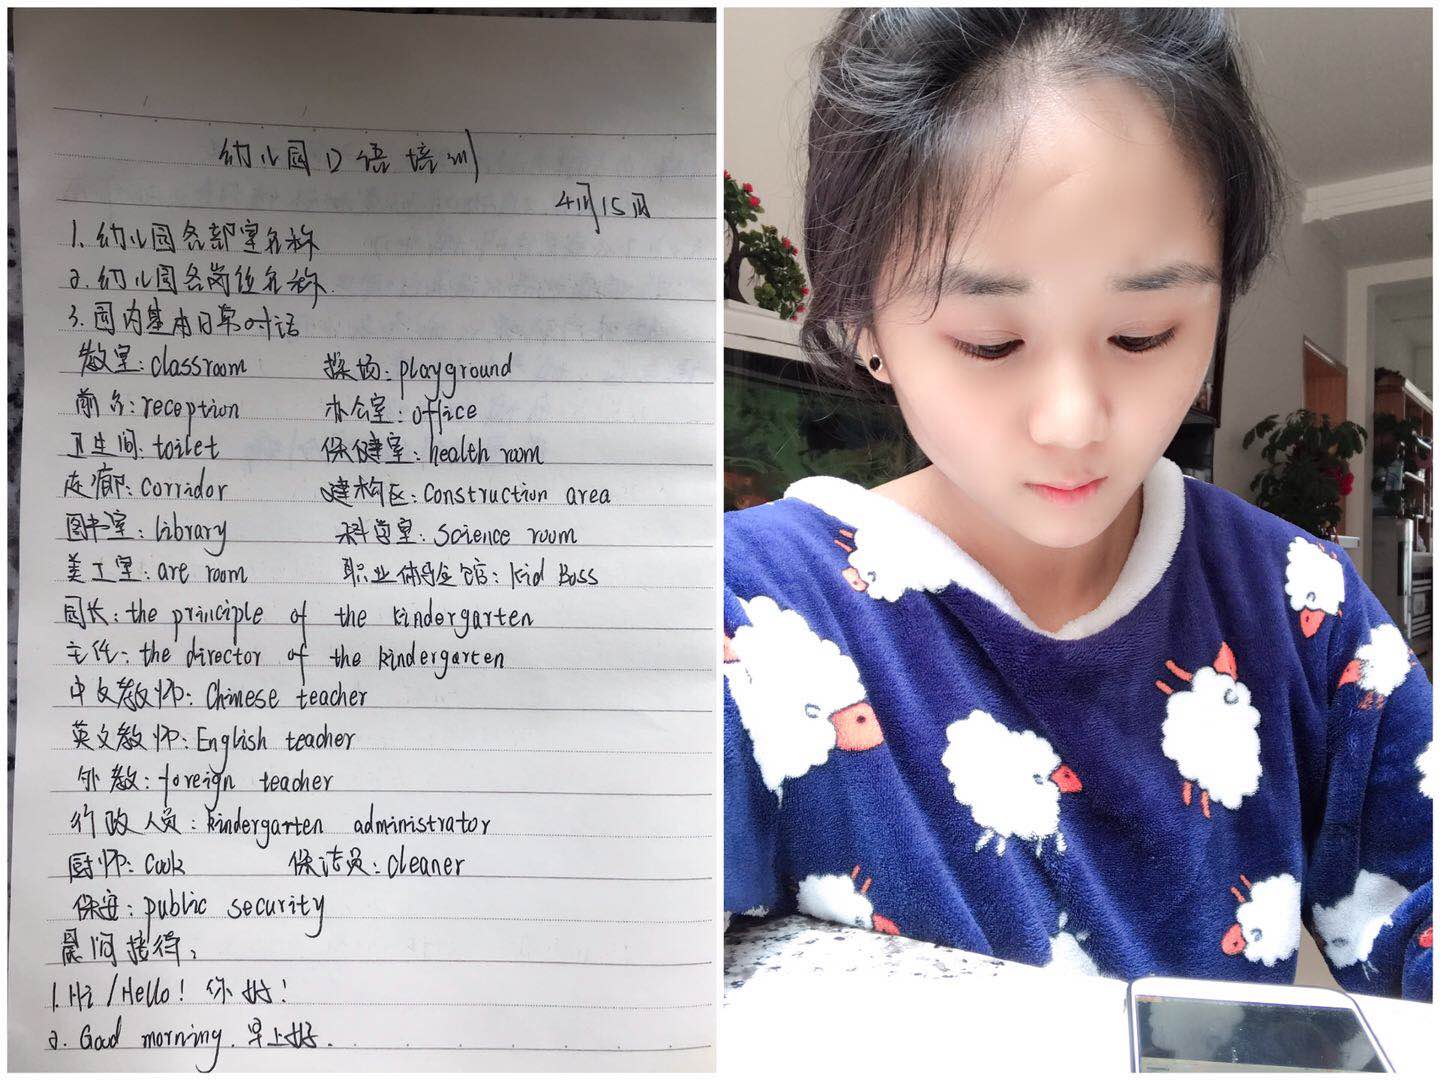 幼儿园口语培训
4月15日
1.幼儿园各部室名称
2.幼儿园各岗位名称.
3.园内基本日常对话
教室:classroom 操场:playground
前台:reception 办公室:office
卫生间:toilet 保健室:health room
走廊:corridor 建构区:construction area
图书室:library 科学室:science room
美工室:are room 职业体验馆:kid Boss
园长:the principle of the kindergarten
主任:the director of the kindergarten
中文教师:Chinese teacher
英文教师:English teacher
外教:foreign teacher
行政人员:kindergarten administrator
厨师:cook 保洁员:cleaner
保安:public security
晨间接待:
1.Hi/Hello! 你好!
2.Good morning.早上好.